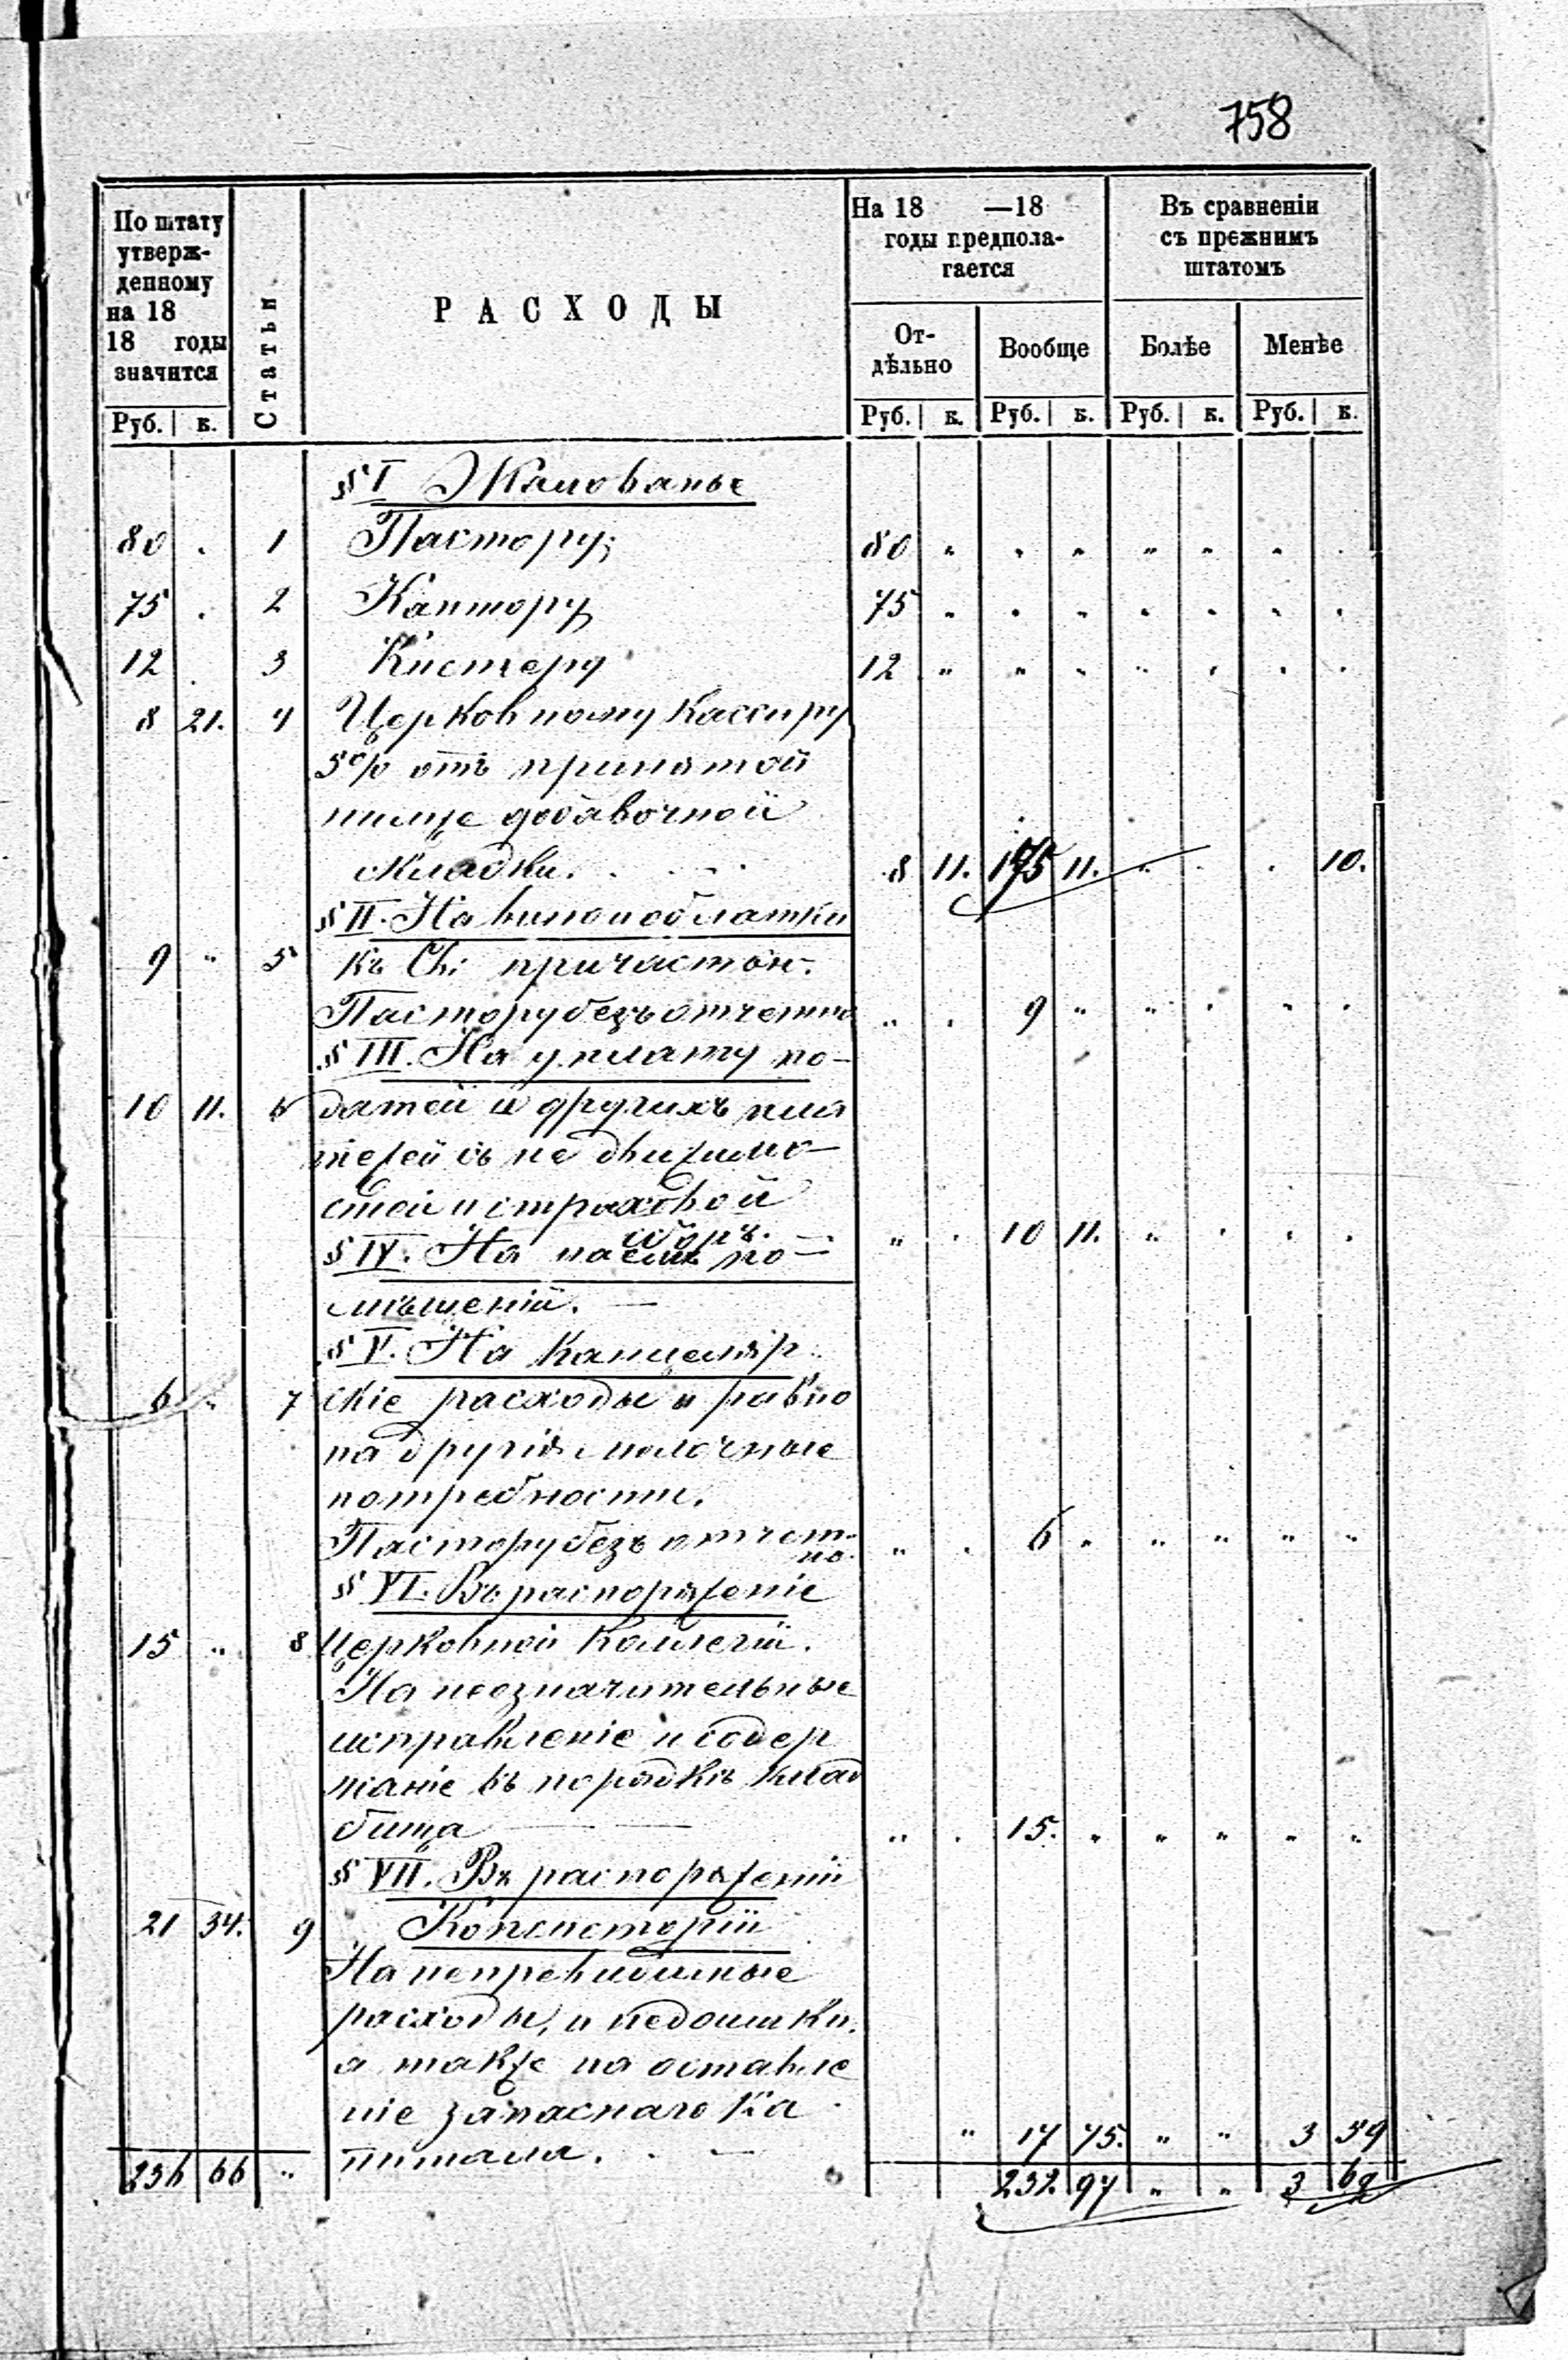 758
По штату утверж-денному на 18 18 годы значится
Статьи
РАСХОДЫ
На 18 —18 годы предпола-гается
Въ сравненіи съ прежнимъ штатомъ
От-дѣльно Вообще Болѣе Менѣе
Руб. к. Руб. к. Руб. к. Руб. к. Руб. к.
§ I Жалованье
80 . 1 Пастору; 80 „ „ „ „ „ „ .
75 . 2 Кантору 75 „ „ „ „ „ „ .
12 . 3 Кистеру 12 „ „ „ „ „ „ .
8 21. 4 Церковному Кассиру
5% отъ принятой
ниже добавочной
складки. . . - . 8 11. 175 11. „ . . 10.
§ II. На вино и облатки
9 „ 5 къ Св: причастію.
Пастору безъ отчетно „ . 9 „ „ „ „ .
§ III. На уплату по-
10 11. 6 датей и другихъ пла
тежей съ не движимо-
стей и страховой
сборъ. — „ . 10 11. „ . . .
§ IV. На наемъ по-
мѣщеній. —
§ V. На канцеляр.
6 „ 7 скіе расходы и равно
на другія мелочные
потребности.
Пастору безъ отчет- „ . 6 „ „ „ „ „
но.
§ VI. Въ распоряженіе
15 „ 8 Церковной Коллегіи.
На незначительные
исправленіе и содер
жаніе въ порядкѣ клад
бища — — „ . 15. „ „ „ „ „
§ VII. Въ распоряженіи
21 34. 9 Консисторіи
На непревидимые
расходы, и недоимки.
а также на оставле
ніе запаснаго Ка
питала. . - „ 17 75. „ „ 3 59
236 66 „ 232. 97 „ „ 3 69